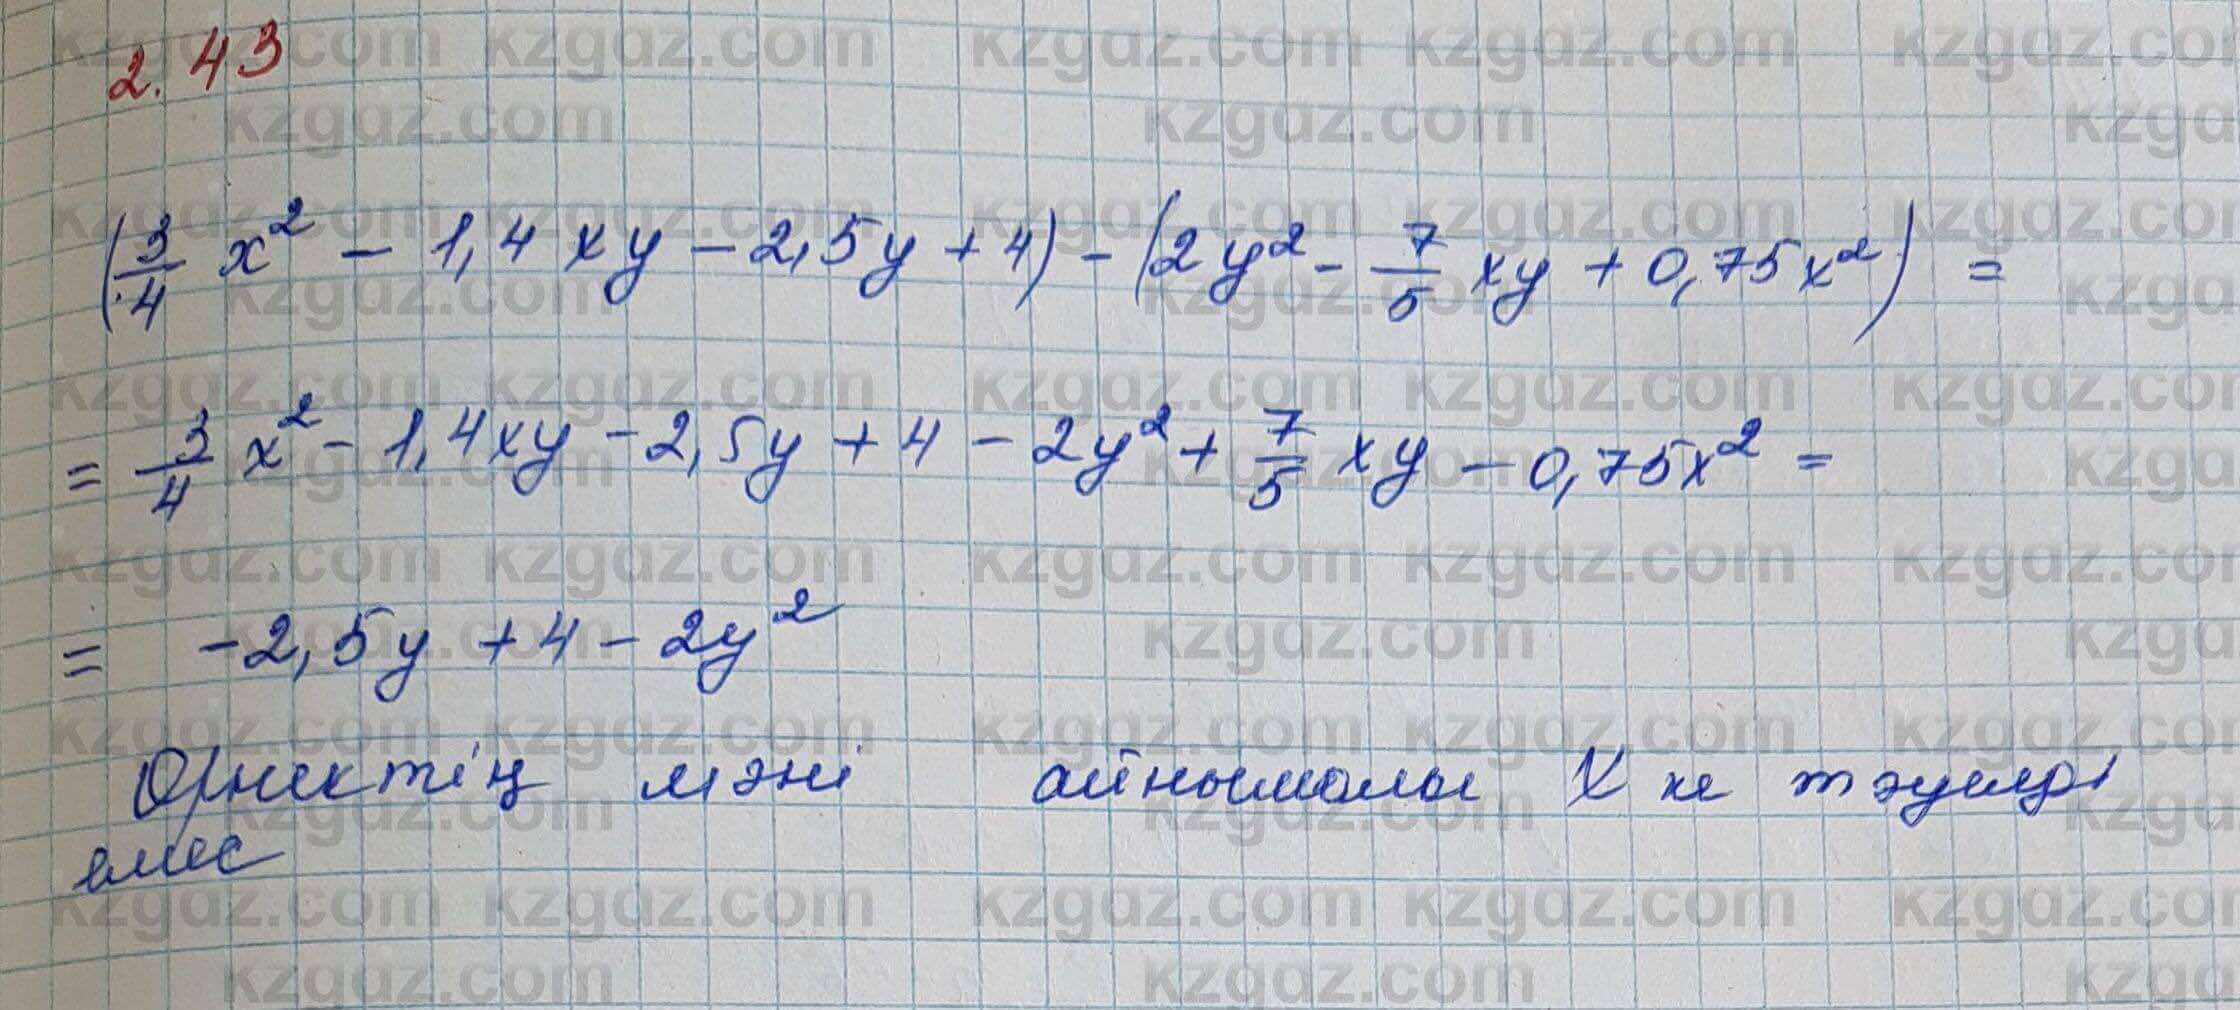 2.43
(3/4 x² - 1,4xy - 2,5y + 4) - (2y² - 7/5 xy + 0,75x²) =
= 3/4 x² - 1,4xy - 2,5y + 4 - 2y² + 7/5 xy - 0,75x² =
= -2,5y + 4 - 2y²
Өрнектің мәні айнымалы X ке тәуелді
емес
kzgdz.com